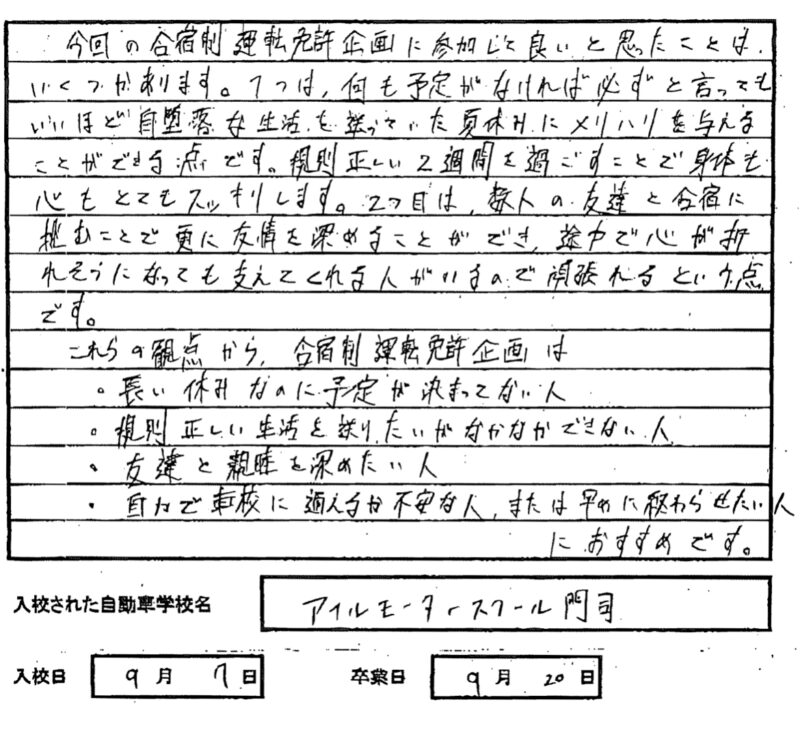 今回の合宿制運転免許企画に参加して良いと思ったことは、
いくつかあります。1つは、何も予定がなければ必ずと言っても
いいほど自堕落な生活を送っていた夏休みにメリハリを与える
ことができる点です。規則正しい2週間を過ごすことで身体も
心もとてもスッキリします。2つ目は、数人の友達と合宿に
挑むことで更に友情を深めることができ、途中で心が折
れそうになっても支えてくれる人がいるので頑張れるという点
です。
これらの観点から、合宿制運転免許企画は
・長い休みなのに予定が決まってない人
・規則正しい生活を送りたいがなかなかできない人
・友達と親睦を深めたい人
・自力で車校に通えるか不安な人、または早めに終わらせたい人
におすすめです。
入校された自動車学校名 アイルモータースクール門司
入校日 9月 7日 卒業日 9月 20日